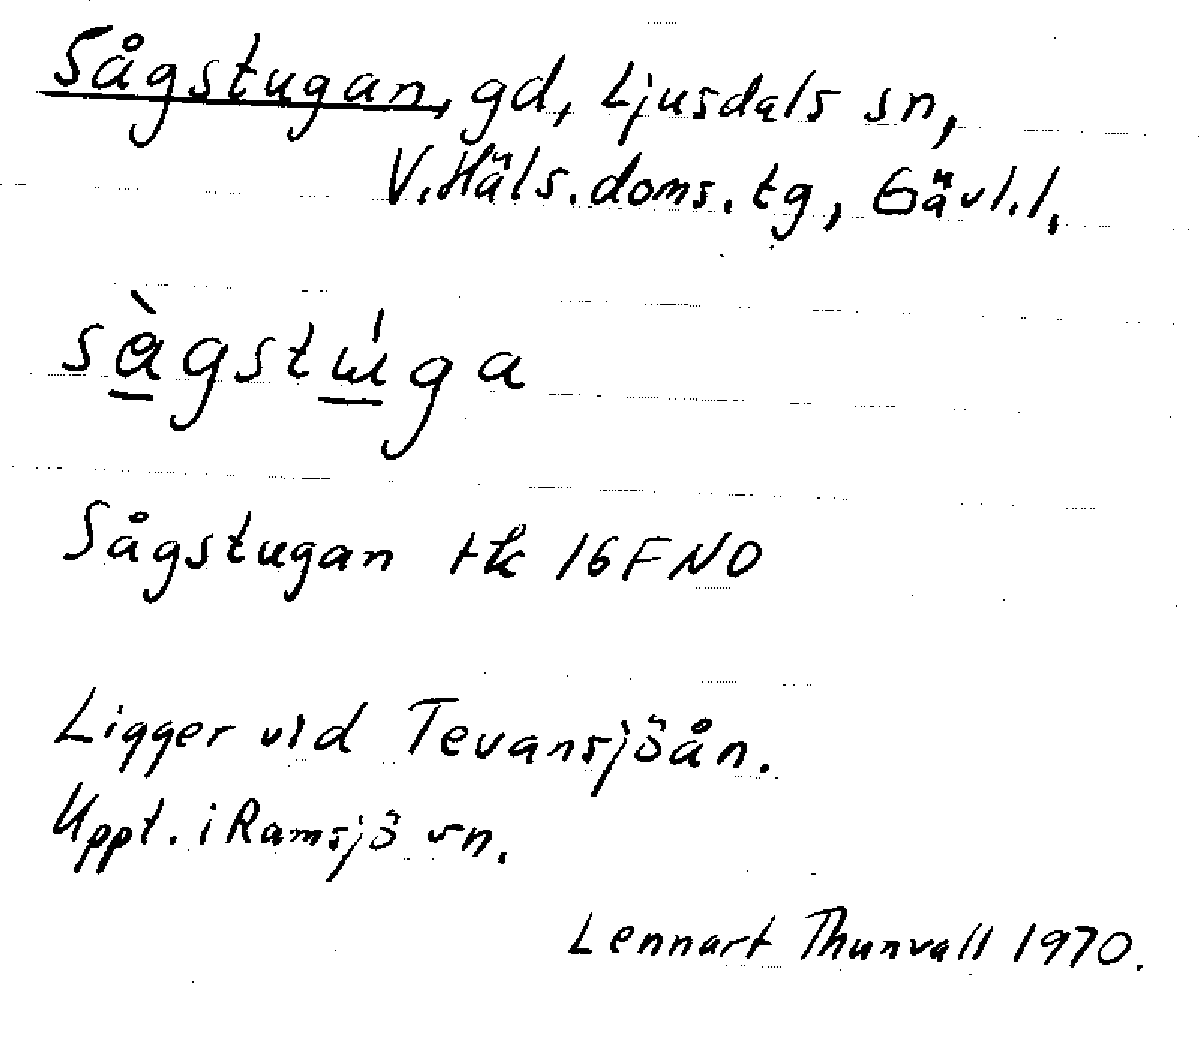 Sågstugan, gd, Ljusdals sn,
V.Häls.doms.tg, Gävl.l.
sàgstɯ́ga
Sågstugan tk 16FNO
Ligger vid Tevansjöån.
Uppt. i Ramsjö sn.
Lennart Thunvall 1970.